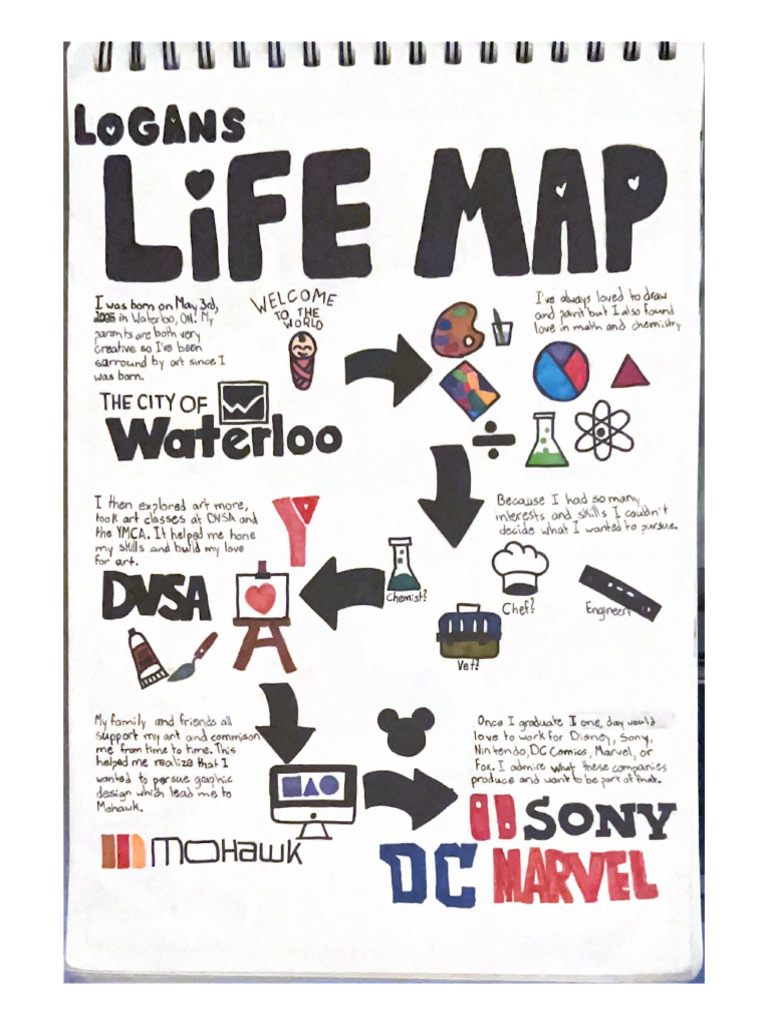 LOGANS
LiFE MAP
I was born on May 3rd,
2005 in Waterloo, ON. My
parents are both very
creative so I've been
surround by art since I
was born.
WELCOME
TO THE
WORLD
THE CITY OF
Waterloo
I've always loved to draw
and paint but I also found
love in math and chemistry
Because I had so many
interests and skills I couldn't
decide what I wanted to pursue.
Chemist?
Chef?
Engineer?
Vet?
I then explored art more,
took art classes at DVSA and
the YMCA. It helped me hone
my skills and build my love
for art.
Y
DVSA
My family and friends all
support my art and commision
me from time to time. This
helped me realize that I
wanted to persue graphic
design which lead me to
Mohawk.
mohawk
Once I graduate I one day would
love to work for Disney, Sony,
Nintendo, DC Comics, Marvel, or
Fox. I admire what these companies
produce and want to be part of that.
SONY
DC MARVEL